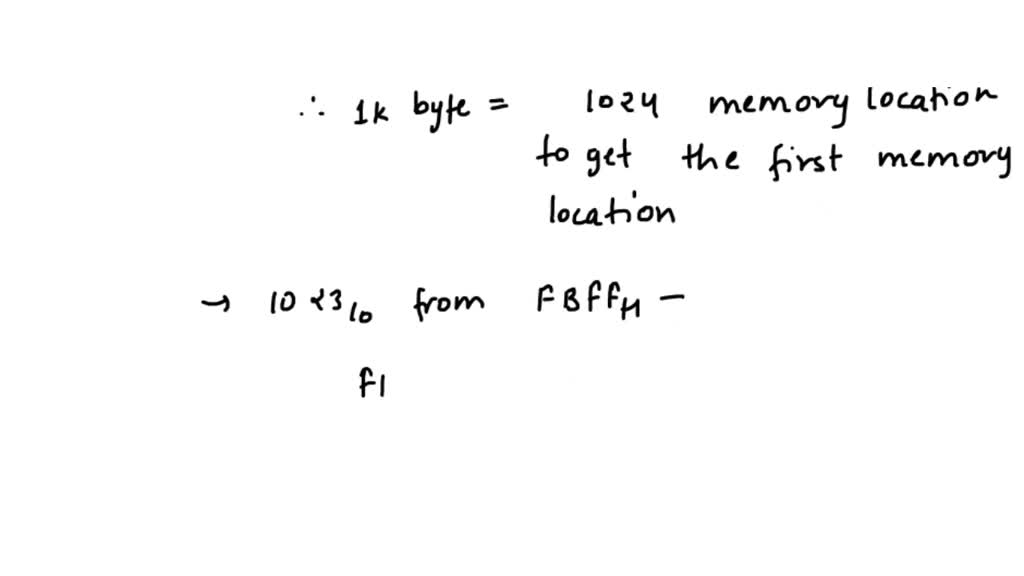 ∴ 1k byte = 1024 memory location
to get the first memory
location
→ 1023₁₀ from FBFFH –
F1